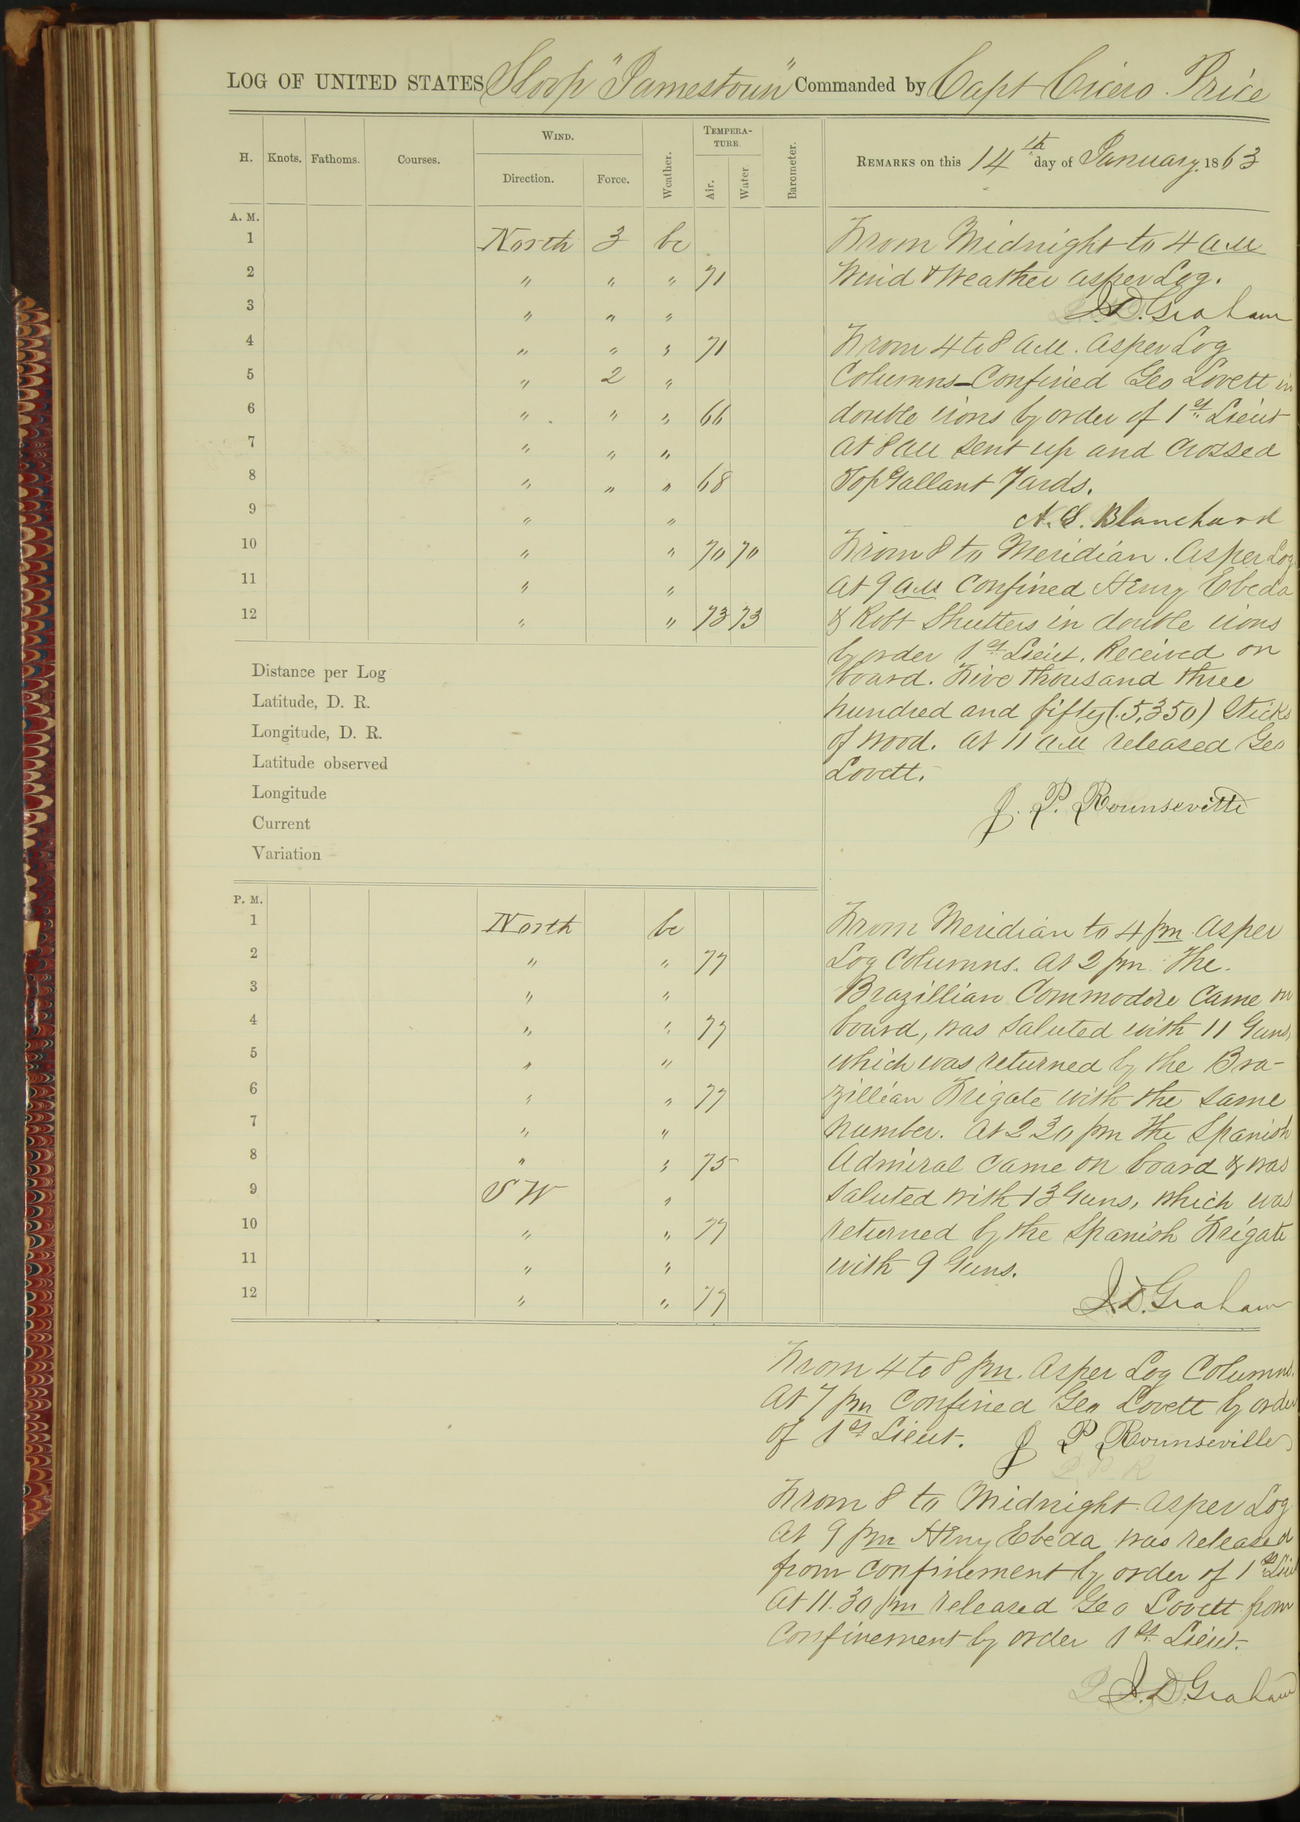 LOG OF UNITED STATES Sloop "Jamestown" Commanded by Capt Cicero Price
H. Knots. Fathoms. Courses. WIND. Direction. Force. Weather. TEMPERATURE. Air. Water. Barometer.
REMARKS on this 14th day of January, 1863
A. M.
1 North 3 bc
2 " " " 71
3 " " "
4 " " " 71
5 " 2 "
6 " " " 66
7 " " "
8 " " " 68
9 " "
10 " " 70 70
11 " "
12 " " 73 73
From Midnight to 4 AM
Wind & Weather as per Log.
J. D. Graham
From 4 to 8 AM. As per Log
Columns – Confined Geo Lovett in
double irons by order of 1st Lieut
At 8 AM sent up and crossed
Top Gallant Yards.
Blanchard
From 8 to Meridian. As per Log
At 9 AM confined Henry Ebeda
& Robt Shutters in double irons
by order 1st Lieut. Received on
board. Five thousand three
hundred and fifty (5,350) Sticks
of wood. At 11 AM released Geo
Lovett.
J. P. Rounseville
Distance per Log
Latitude, D. R.
Longitude, D. R.
Latitude observed
Longitude
Current
Variation
P. M.
1 North bc
2 " " 77
3 " "
4 " " 77
5 " "
6 " " 77
7 " "
8 " " 75
9 S W "
10 " " 77
11 " "
12 " " 77
From Meridian to 4 pm As per
Log Columns. At 2 pm The
Brazillian Commodore came on
board, was saluted with 11 Guns,
which was returned by the Bra-
zillian Frigate with the same
number. At 2 30 pm The Spanish
Admiral came on board & was
saluted with 13 Guns, which was
returned by the Spanish Frigate
with 9 Guns.
J. D. Graham
From 4 to 8 pm. As per Log Columns.
At 7 pm Confined Geo Lovett by order
of 1st Lieut. J P Rounseville
From 8 to Midnight As per Log
At 9 pm Henry Ebeda was released
from confinement by order of 1st Lieut
At 11.30 pm released Geo Lovett from
confinement by order 1st Lieut.
J. D. Graham